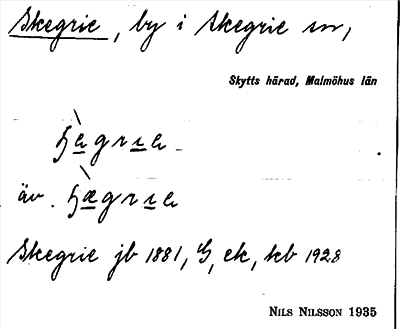 Skegrie, by i Skegrie sn,
Skytts härad, Malmöhus län
äv.
Skegrie jb 1881, G, ek, kb 1928
NILS NILSSON 1935